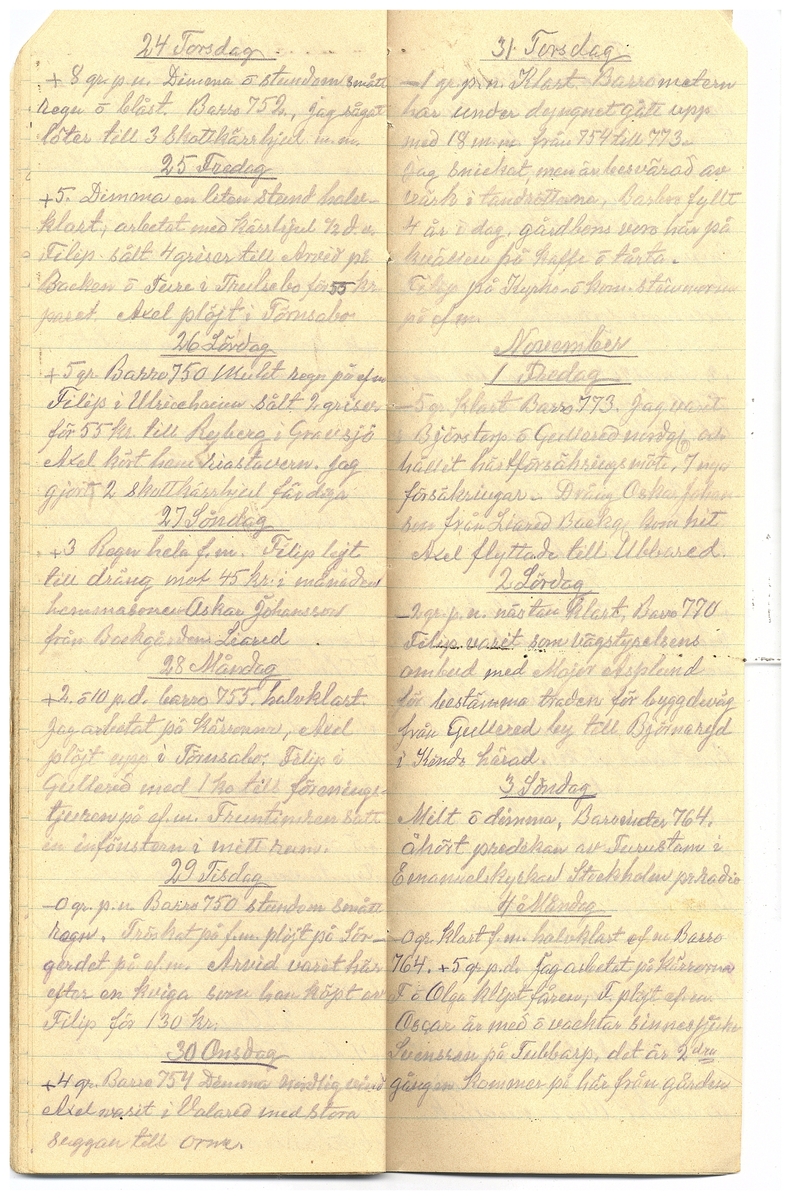 24 Torsdag
+ 8 gr. p. n. Dimma ô stundom smått
regn ô blåst. Barro 752, Jag sågat
löter till 3 Skottkärrhjul m.m.
25 Fredag
+5. Dimma en liten stund halv-
klart, arbetat med kärrhjul ½ d. e.
Filip sålt 4 griser till Arvid på
Backen ô Ture i Trulsabo för 55 kr
paret. Axel plöjt i Törnsabo
26 Lördag
+5 gr. Barro 750 Mulet regn på ef.m
Filip i Ulricehamn sålt 2 griser
för 55 kr. till Ryberg i Gravsjö
Axel kört hem
gjort 2 skottkärrhjul färdiga
27 Söndag
+3 Regn hela f.m. Filip lejt
till dräng mot 45 kr. i månaden
hemmasonen Oskar Johansson
från Backgården Liared
28 Måndag
+2. ô 10 p. d. barro 755. halvklart.
Jag arbetat på kärrorna, Axel
plöjt upp i Törnsabo. Filip i
Gullered med 1 ko till förenings-
tjuren på ef.m. Fruntimren satt
in infönstern i mitt rum.
29 Tisdag
-0 gr. p. n. Barro 750 stundom smått
regn. Tröskat på f.m. plöjt på Sör-
gärdet på ef.m. Arvid varit här
efter en kviga som han köpt av
Filip för 130 kr.
30 Onsdag
+4 gr. Barro 754 Dimma nordlig vind
Axel varit i Valared med stora
suggan till orne.
31 Torsdag
-1 gr. p. n. Klart. Barrometern
har under dyngnet gått upp
med 18 m.m. från 754 till 773.
Jag snickat, men är besvärad av
värk i tandrötterna, Barbro fyllt
4 år i dag, gårdbons voro här på
kvällen på kaffe ô tårta.
Filip på Kyrko- ô kom. stämmorna
på ef.m.
November
1 Fredag
-5 gr. klart Barro 773. Jag varit
i Björstorp ô Gullered nordg. och
hållit hästförsäkringsmöte, 7 nya
försäkringar. Dräng Oskar Johan
son från Liared Backg. kom hit
Axel flyttade till Ubbared.
2 Lördag
-2 gr. p. n. nästan klart, Barro 770
Filip varit som vägstyrelsens
ombud med Major Asplund
för bestämma traden för byggdeväg
från Gullered by till Björnaryd
i Kinds härad.
3 Söndag
Milt ô dimma, Barro under 764.
åhört predikan av i
Emanuelskyrkan Stockholm pr radio
4 Måndag
-0 gr. klart f.m. halvklart ef.m Barro
764. +5 gr. p. d. Jag arbetat på kärrorna
F ô Olga klipt fåren, F. plöjt ef.m.
Oscar är med ô vacktar sinnessjuke
Svensson på Tubbarp, det är 2dra
gången kommer på här från gården